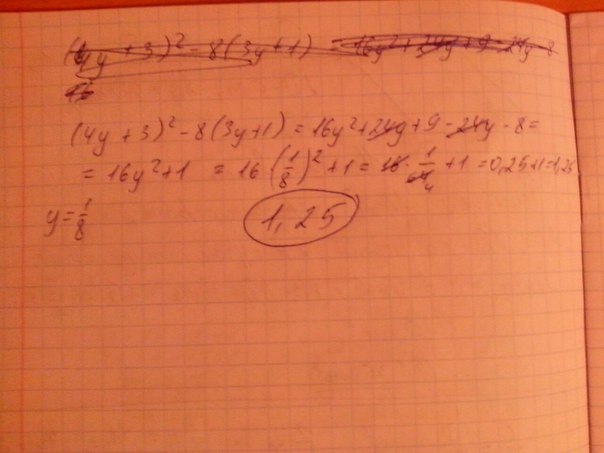 (4y + 3)² - 8(3y+1) = 16y² + 24y + 9 - 24y - 8
16
(4y + 3)² - 8(3y+1) = 16y² + 24y + 9 - 24y - 8 =
= 16y² + 1 = 16(1/8)² + 1 = 16 · 1/64 4 + 1 = 0,25+1=1,25
y = 1/8
1,25